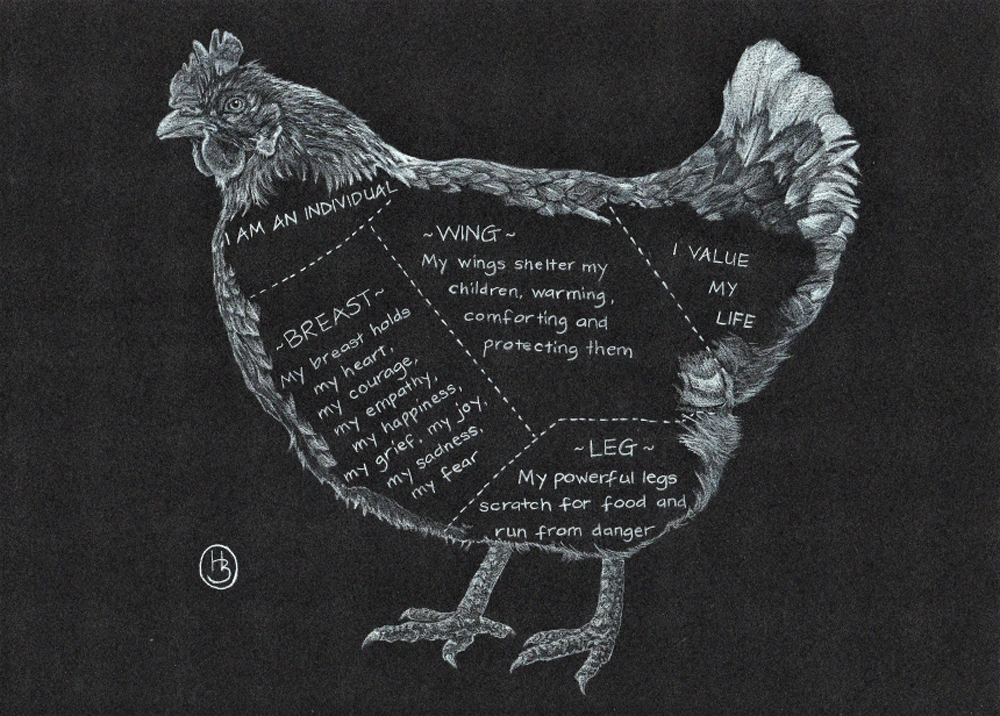 I AM AN INDIVIDUAL
~BREAST~
My breast holds
my heart,
my courage,
my empathy,
my happiness,
my grief, my joy,
my sadness,
my fear
~WING~
My wings shelter my
children, warming,
comforting and
protecting them
I VALUE
MY
LIFE
~LEG~
My powerful legs
scratch for food and
run from danger
HB